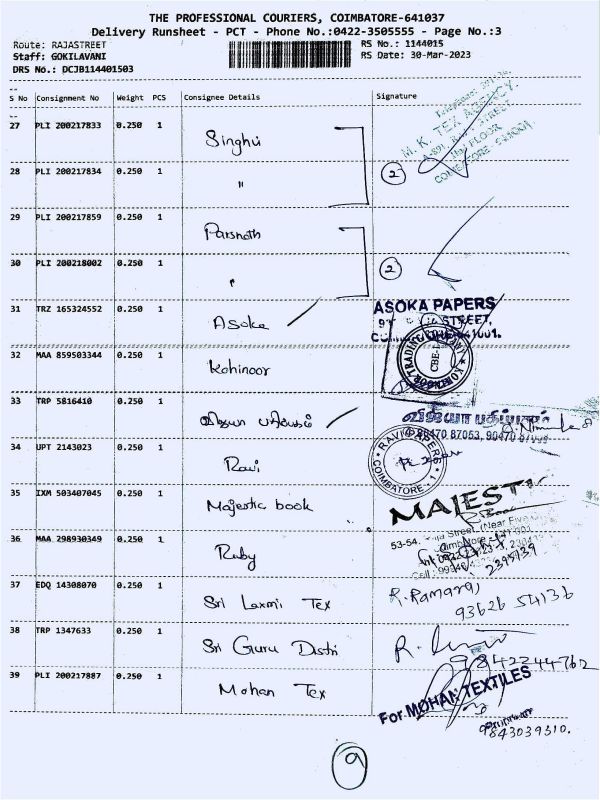 THE PROFESSIONAL COURIERS, COIMBATORE-641037
Delivery Runsheet - PCT - Phone No.:0422-3505555 - Page No.:3
Route: RAJASTREET
RS No.: 1144015
Staff: GOKILAVANI
RS Date: 30-Mar-2023
DRS No.: DCJB114401503
S No Consignment No Weight PCS Consignee Details Signature
27 PLI 200217833 0.250 1 Singhvi
M. K. TEX AGENCY
28 PLI 200217834 0.250 1 " 2
29 PLI 200217859 0.250 1 Parsnath
30 PLI 200218002 0.250 1 " 2
31 TRZ 165324552 0.250 1 Asoka
ASOKA PAPERS
STREET,
32 MAA 859503344 0.250 1 Kohinoor
KOHINOOR TRADING COMPANY
CBE-1
33 TRP 5816410 0.250 1 விஜயா பதிப்பகம்
விஜயா பதிப்பகம்
90470 87053,
34 UPT 2143023 0.250 1 Ravi
RAVI PAPERS
COIMBATORE - 1
35 IXM 503407045 0.250 1 Majestic book
MAJEST
36 MAA 298930349 0.250 1 Ruby
53-54, Street (Near Five
2395939
37 EDQ 14308070 0.250 1 Sri Laxmi Tex
R. Ramaraj
93626 54136
38 TRP 1347633 0.250 1 Sri Guru Distri
9842244762
39 PLI 200217887 0.250 1 Mohan Tex
For MOHAN TEXTILES
9843039310.
9